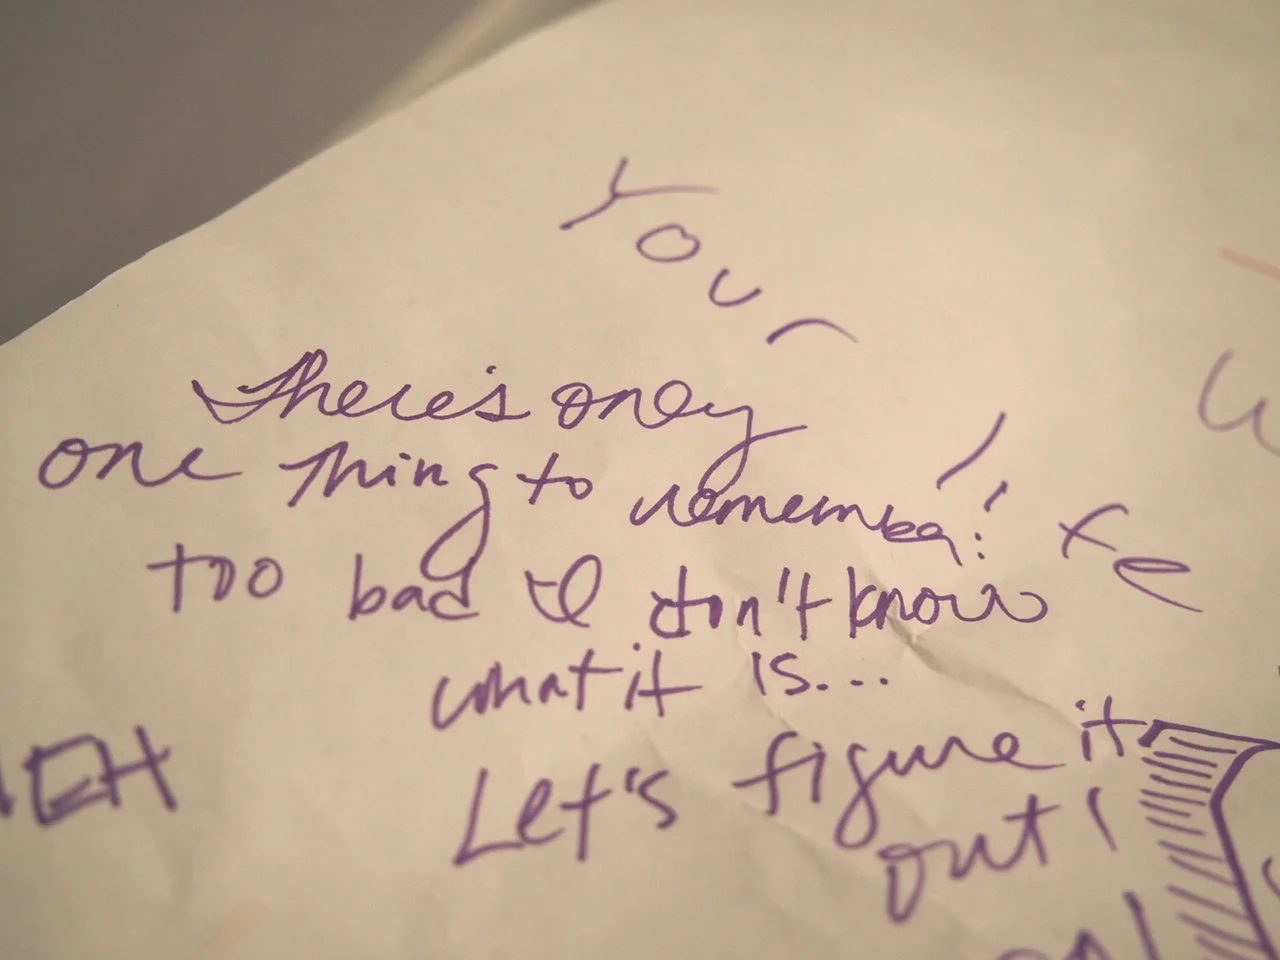 Your
life
There's only
one thing to remember!
too bad I don't know
what it is...
Let's figure it
out!